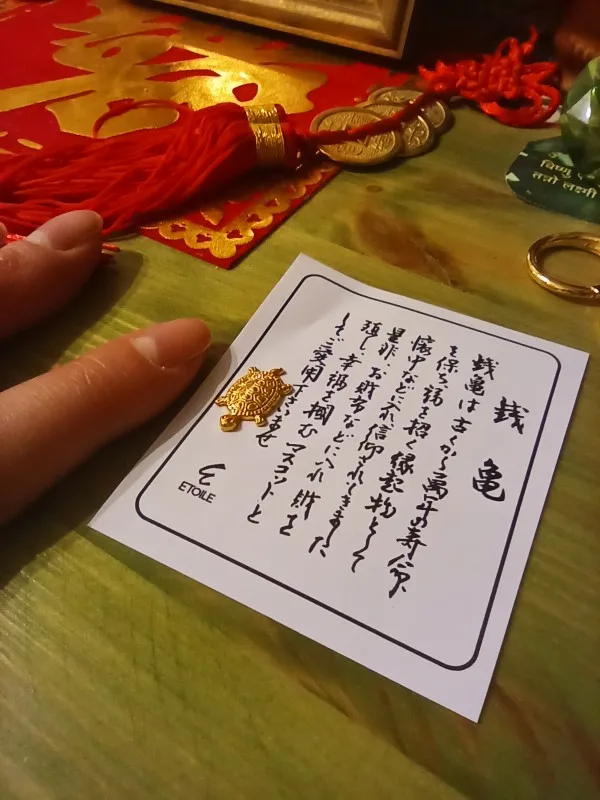 銭亀
銭亀は古くから萬年の寿命、
を保ち福を招く縁起物として
懐中などに入れ信仰されてきました
是非、お財布などに入れ財を
殖し、幸福を掴むマスコットと
してご愛用下さいませ
ETOILE
विष्णु
तन्नो लक्ष्मी